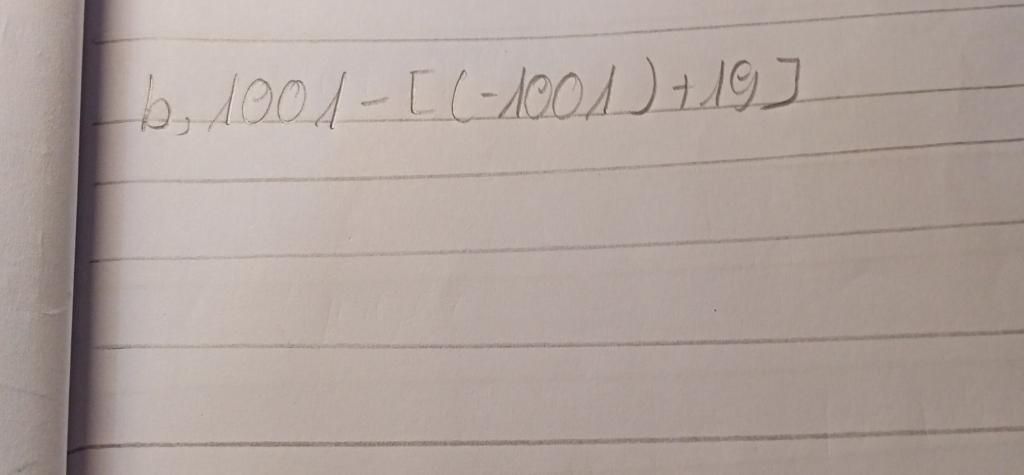 b, 1001 - [(-1001) + 19]